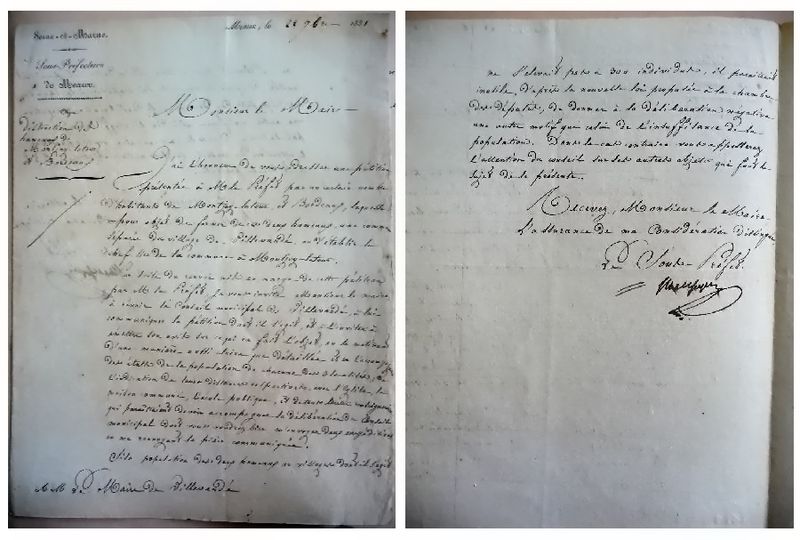 Seine-et-Marne.
Sous-Préfecture
de Meaux.
Distraction des
hameaux de
Montigy leteux
et Bordeaux
Meaux, le 22 9bre 1831
Monsieur le Maire
J'ai l'honneur de vous adresser une pétition
présentée à M. le Préfet par un certain nombre
d'habitants de Montigy-leteux, et Bordeaux, laquelle
a pour objet de former de ces deux hameaux une commune
séparée du village de Villevaudé, et d'établir le
chef lieu de la commune à Montigy-leteux.
par M. le Préfet, je vous invite Monsieur le maire,
à réunir le Conseil municipal de Villevaudé, à lui
communiquer la pétition dont il s'agit, et à l'inviter à
émettre son avis sur ce qui en fait l'objet, en le motivant
d'une manière aussi claire que détaillée et en l'accompagnant
des états de la population de chacune des localités, de
l'indication de leurs distances respectives, avec l'église, la
maison commune, l'école publique, et de tous autres renseignements
qui paraîtraient devoir accompagner la délibération du Conseil
municipal dont vous voudrez bien m'envoyer deux expéditions
en me renvoyant la pièce communiquée.
Si la population des deux hameaux ou villages dont il s'agit
A M. Le Maire de Villevaudé
ne s'élevait pas à 300 individus, il paraîtrait
inutile, d'après la nouvelle loi proposée à la chambre
des députés, de donner à la délibération négative
une autre motif que celui de l'insuffisance de la
population. Dans le cas contraire vous appellerez
l'attention du conseil sur les autres objets qui font le
sujet de la présente.
Recevez, Monsieur le Maire,
l'assurance de ma Considération distinguée
Le Sous-Préfet.